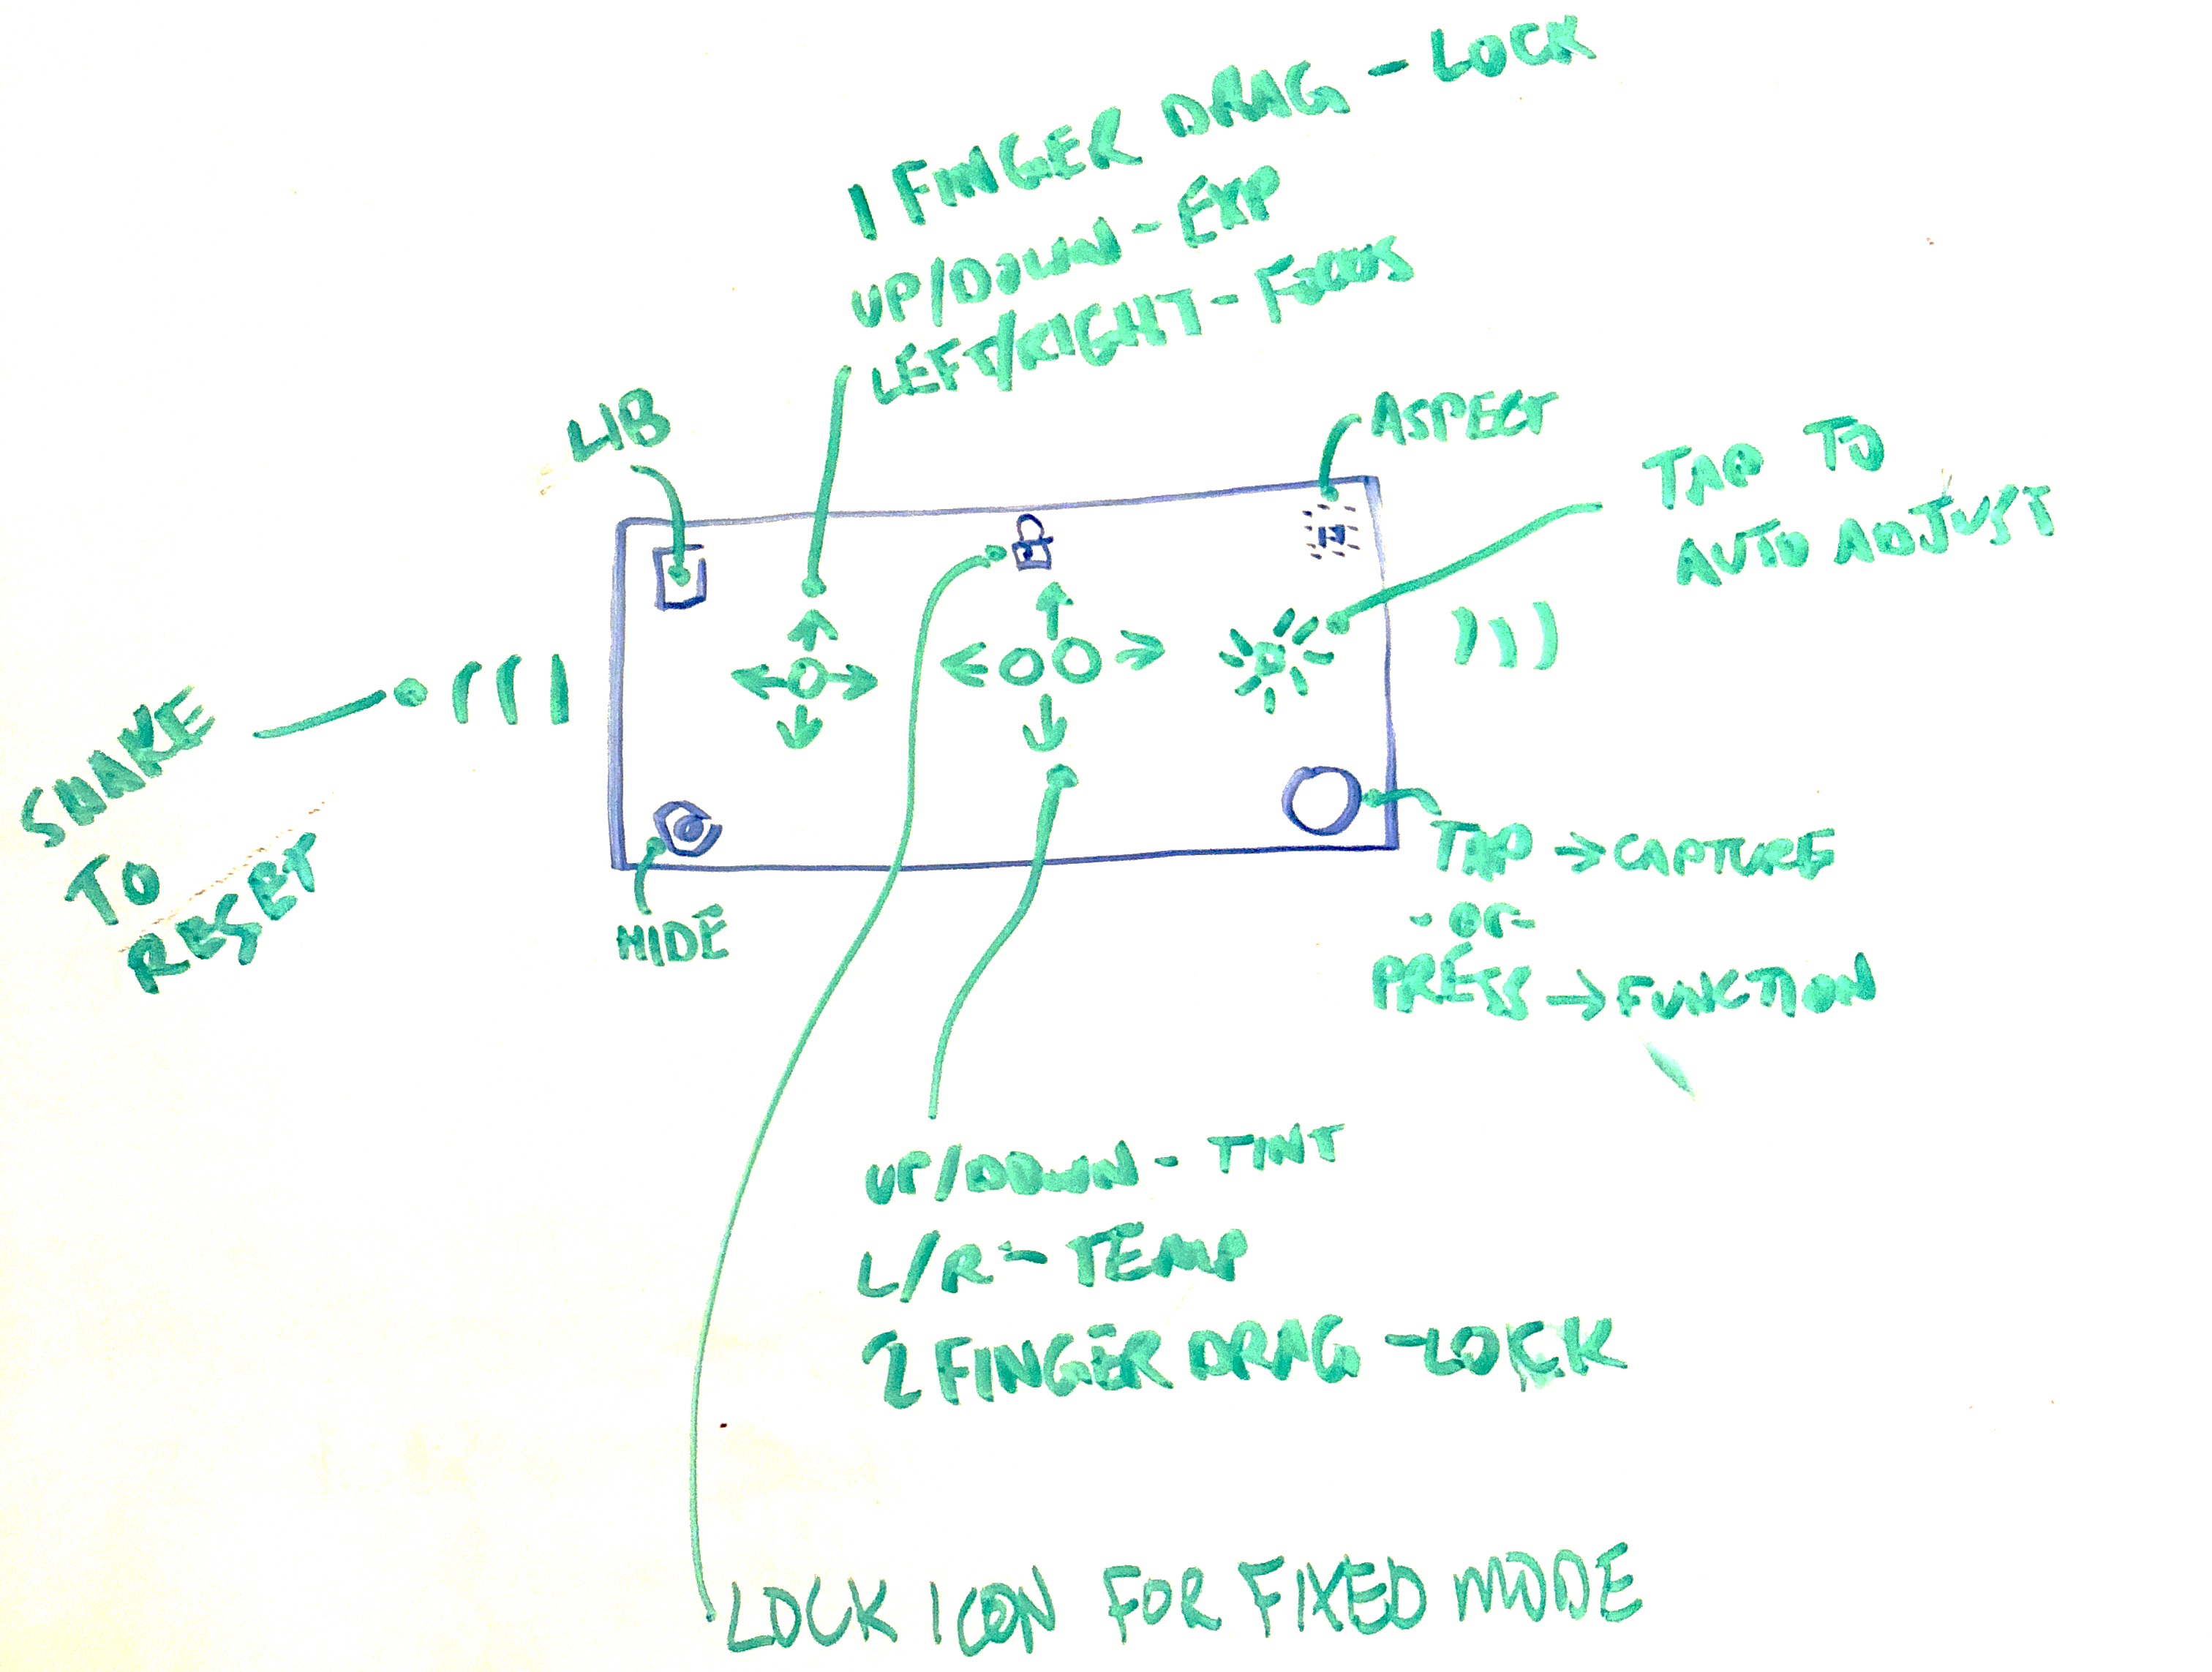 1 FINGER DRAG - LOCK
UP/DOWN - EXP
LEFT/RIGHT - FOCUS
LIB
ASPECT
TAP TO
AUTO ADJUST
SHAKE
TO
RESET
HIDE
TAP → CAPTURE
- OR -
PRESS → FUNCTION
UP/DOWN - TINT
L/R - TEMP
2 FINGER DRAG - LOCK
LOCK ICON FOR FIXED MODE